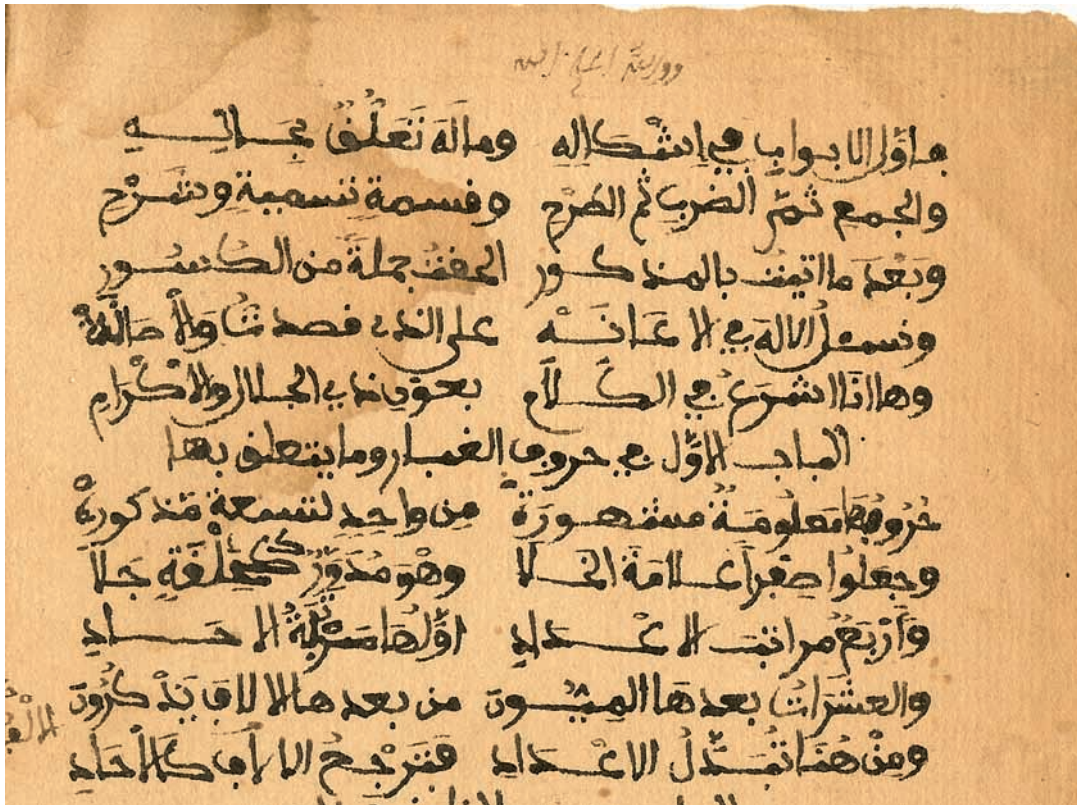 فأول الأبواب في إشكاله وما له تعلق بحاله
والجمع ثم الضرب ثم الطرح وقسمة تسمية وشرح
وبعد ما أتيت بالمذكور ألحقت جملة من الكسور
ونسئل الإله في الإعانه على الذي قصدنا والإ
وها أنا أشرع في الكلام بعون ذي الجلال والإكرام
الباب الأول في حروف الغبار وما يتعلق بها
حروفها معلومة مشهورة من واحد لتسعة مذكورة
وجعلوا صفرا علامة الخلا وهو مدور كحلقة جلا
وأربع مراتب الأعداد أولها منزلة الأحاد
والعشرات بعدها المئون من بعدها الآلاف يذكرون
ومن هنا تبدل الأعداد فترجع الآلاف كالأحاد